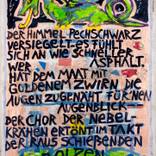 DER HIMMEL PECHSCHWARZ
VERSIEGELT. ES FÜHLT
SICH AN WIE SCHNELLER
ASPHALT.
WER
HAT DEM MAAT MIT
GOLDENEM ZWIRN DIE
AUGEN ZUGENÄHT FÜR NEN
AUGENBLICK
DER CHOR DER NEBEL-
KRÄHEN ERTÖNT IM TAKT
DER RAUS SCHIEẞENDEN
BOLZEN